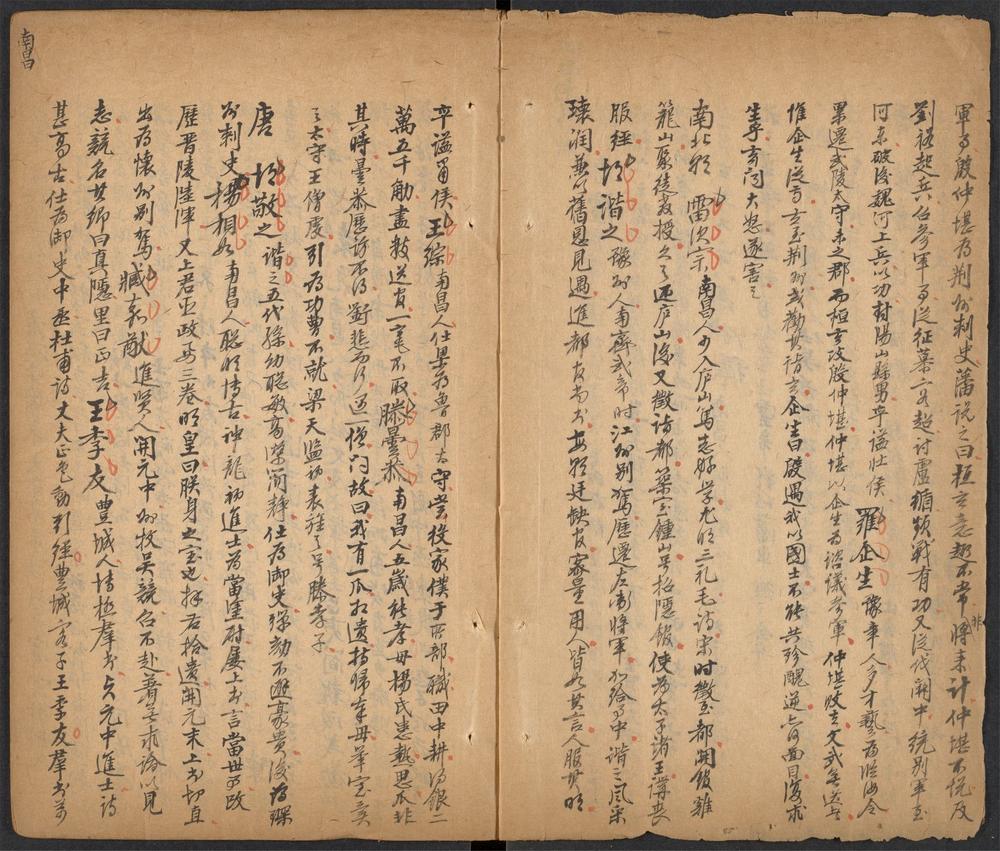 軍事殷仲堪為荆州刺史藩說之曰桓玄意趣不常非將來計仲堪不悅及
劉裕起兵召參軍事從征慕容超討盧循頻戰有功又從伐關中統別軍至
河東破後魏河上兵以功封陽山縣男卒謚壯侯 羅企生 豫章人多才藝為臨汝令
累遷武陵太守未之郡而桓玄攻殷仲堪仲堪以企生為諮議參軍 仲堪敗走文武無送者
惟企生從焉玄至荆州或勸其詣玄企生曰殷遇我以國士不能共殄醜逆何面目復求
生乎玄聞大怒遂害之
南北朝 雷次宗 南昌人少入庐山篤志好學尤明三礼毛詩宋時徵至都開館雞
籠山聚徒教授久之还庐山後又徵詣都築室鍾山号招隱館使為太子諸王講喪
服經 胡諧之 豫章人南齊武帝时江州別駕歷遷左衛將軍加給事中諧之風采
瓌潤兼以舊恩見遇進都官尚书每朝廷缺官密量用人皆如其言人服其明
卒謚肅侯 王綜 南昌人仕果為魯郡太守嘗役家僕于所部職田中耕得銀二
萬五千觔盡数送官一毫不取 滕曇恭 南昌人五歲能孝母楊氏患熱思瓜非
其時曇恭歷訪不得銜悲而行遇一僧问故曰我有一瓜相遺持歸奉母舉室異
之太守王僧虔引為功曹不就梁天監初表旌之号滕孝子
唐 胡敬之 諧之五代孫幼聪敏高潔简靜仕為御史彈劾不避豪貴後為
州刺史 楊相如 南昌人聪明博古神龍初進士為當塗尉屡上书言當世得政
歷晋陵陸渾又上君臣政要三卷明皇曰朕身之宝也拜右拾遺開元末上书切直
出為懷州別驾 臧嘉猷 進賢人開元中州牧吳兢召不赴著史求論以見
志兢名其鄉曰真隱里曰正吉 王季友 豐城人博極羣书上元中進士詩
甚高古仕為御史中丞杜甫詩丈夫正色動引經豐城客子王季友羣书萬
南昌